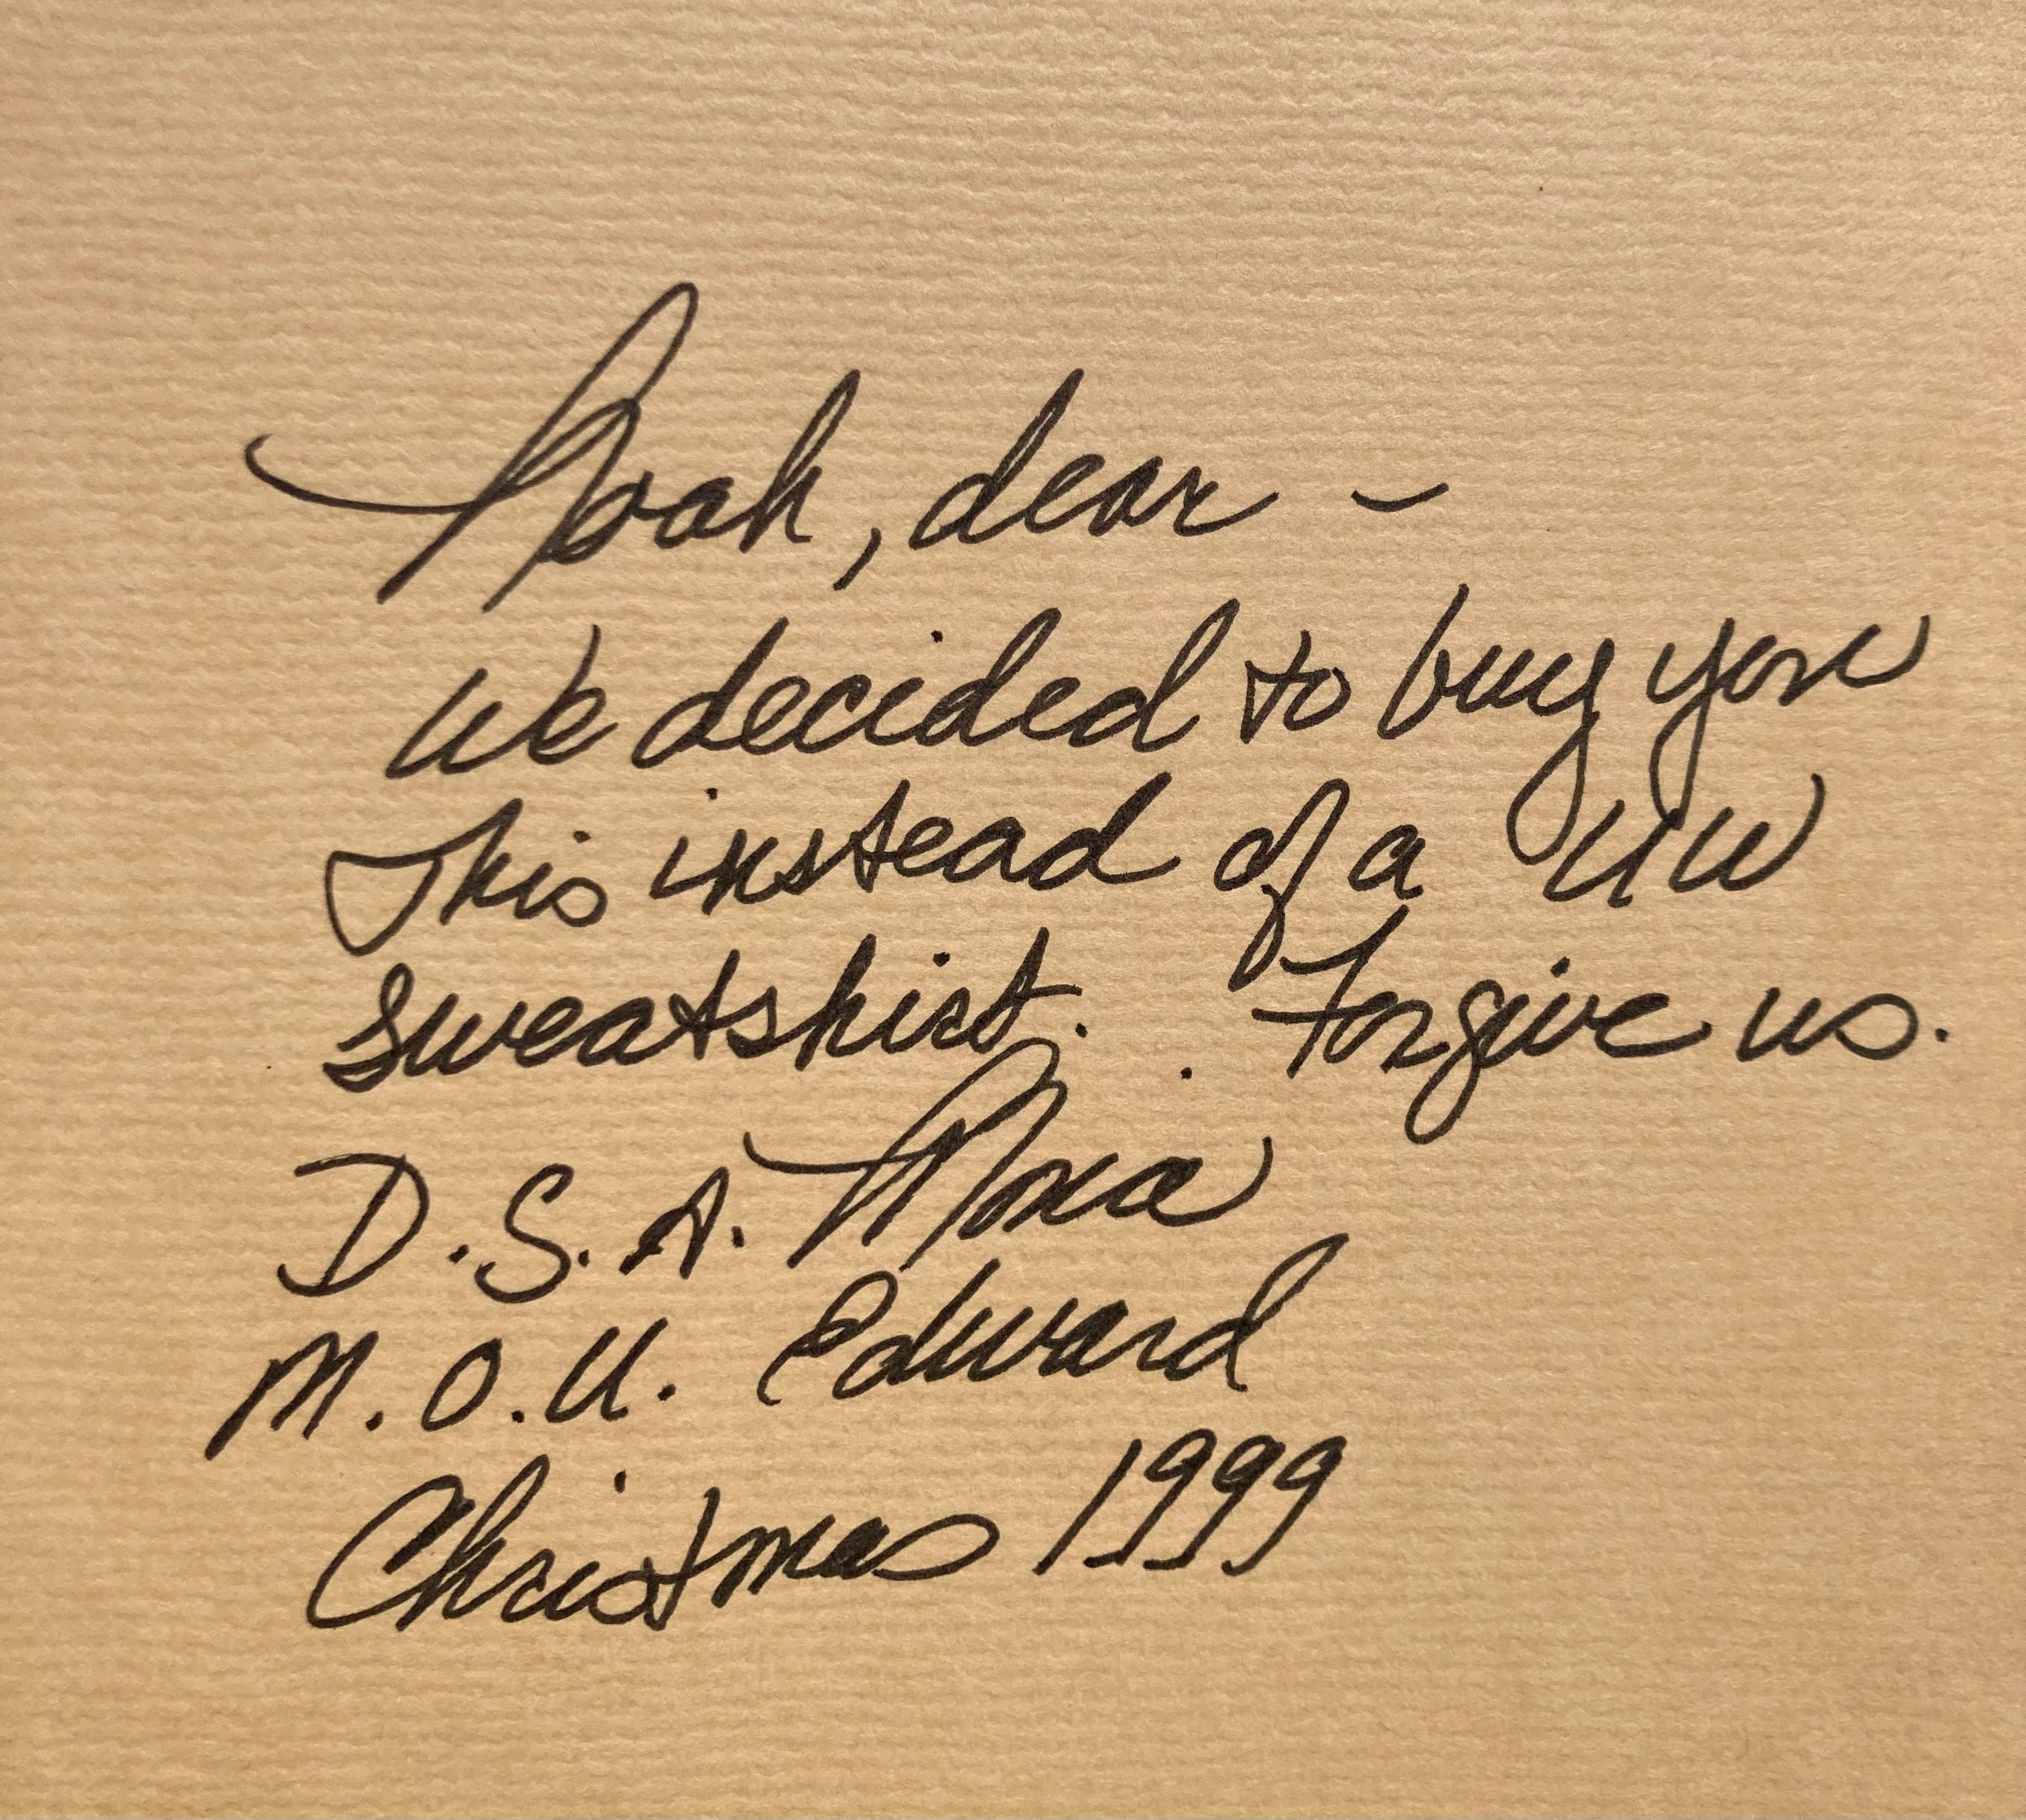 Noah, dear -
We decided to buy you
This instead of a UW
sweatshirt. Forgive us.
D.S.A. Nona
M.O.U. Edward
Christmas 1999